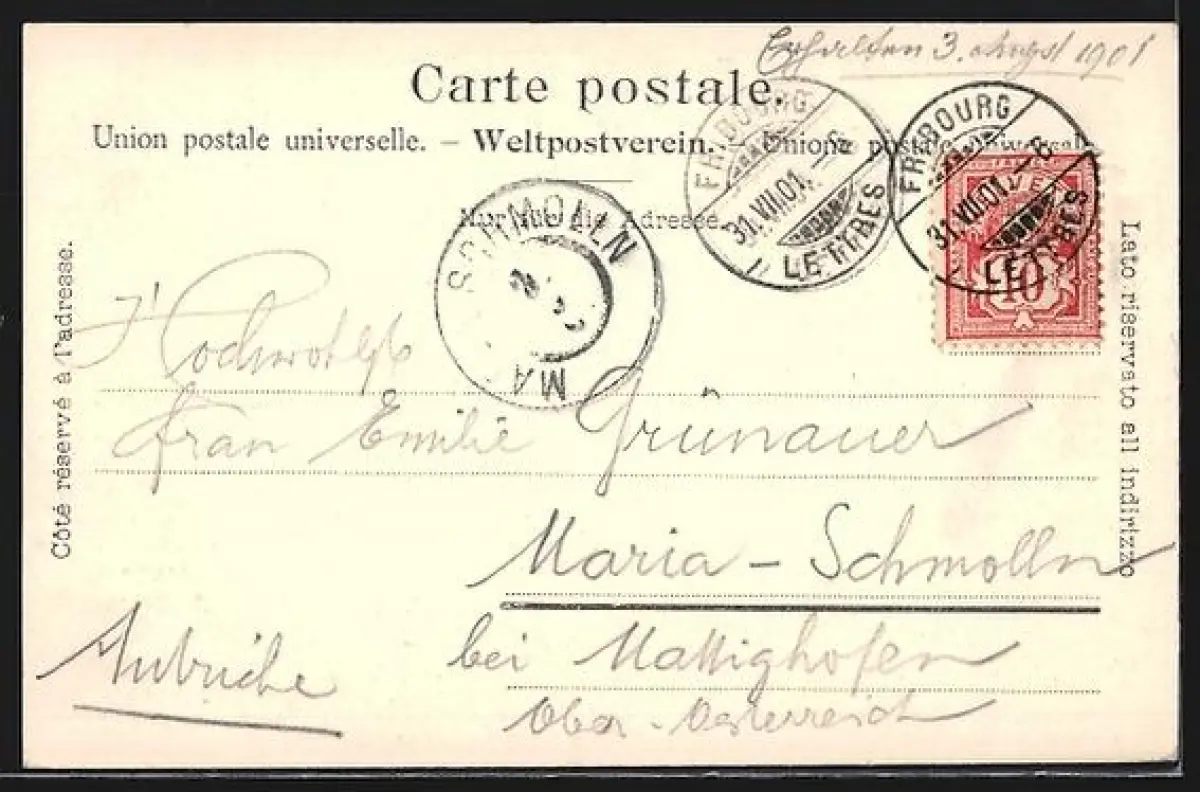 Erhalten 3. August 1901
Carte postale.
Union postale universelle. – Weltpostverein. – Unione postale universale
Nur für die Adresse.
FRIBOURG
31.VII.01.–6
LETTRES
FRIBOURG
31.VII.01.–6
LETTRES
10
SCHMOLLN
MA
Côté réservé à l'adresse.
Lato riservato all indirizzo
Frau Emilie Grünauer
Maria – Schmolln
bei Mattighofen
Ober-Oesterreich
Autriche